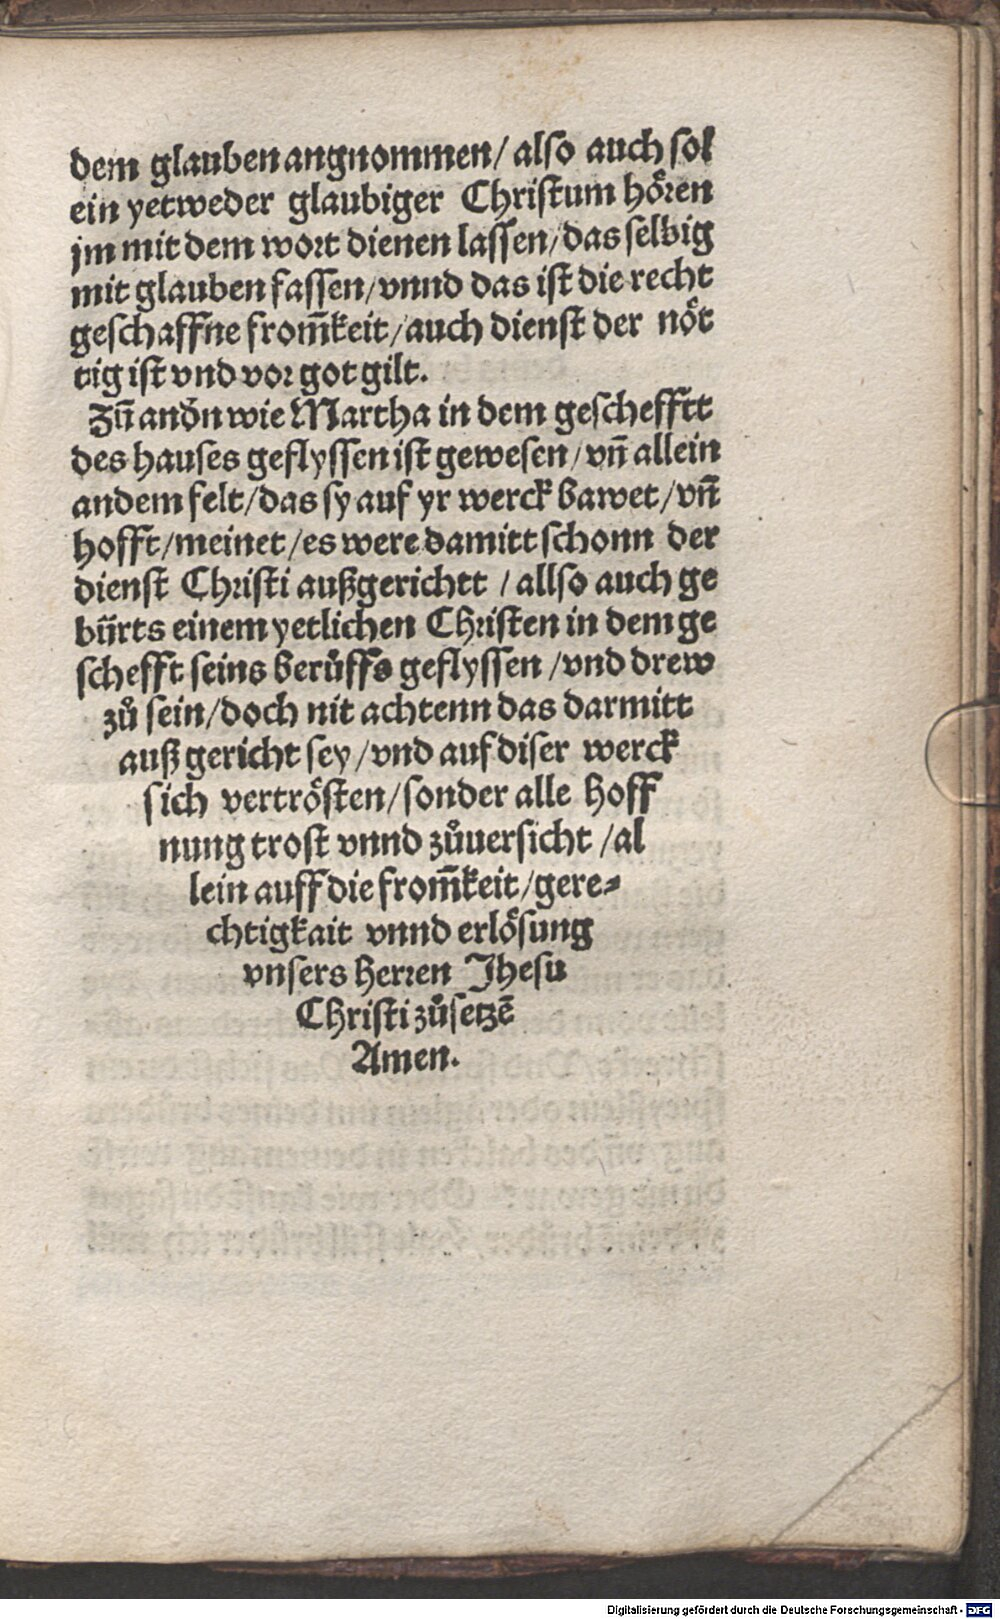 dem glauben angnommen/ also auch sol
ein yetweder glaubiger Christum hoͤren
jm mit dem wort dienen lassen/das selbig
mit glauben fassen/vnnd das ist die recht
geschaffne from̃keit/auch dienst der noͤt
tig ist vnd vor got gilt.
Zũ andn̄ wie Martha in dem geschefftt
des hauses geflyssen ist gewesen/vñ allein
an dem felt/das sy auf yr werck bawet/vñ
hofft/meinet/es were damitt schonn der
dienst Christi außgerichtt /allso auch ge
bürts einem yetlichen Christen in dem ge
schefft seins berůffs geflyssen /vnd drew
zů sein/doch nit achtenn das darmitt
auß gericht sey/vnd auf diser werck
sich vertroͤsten/sonder alle hoff
nung trost vnnd zůuersicht /al
lein auff die from̃keit/gere⸗
chtigkait vnnd erloͤsung
vnsers herren Jhesu
Christi zůsetzẽ
Amen.
Digitalisierung gefördert durch die Deutsche Forschungsgemeinschaft - DFG